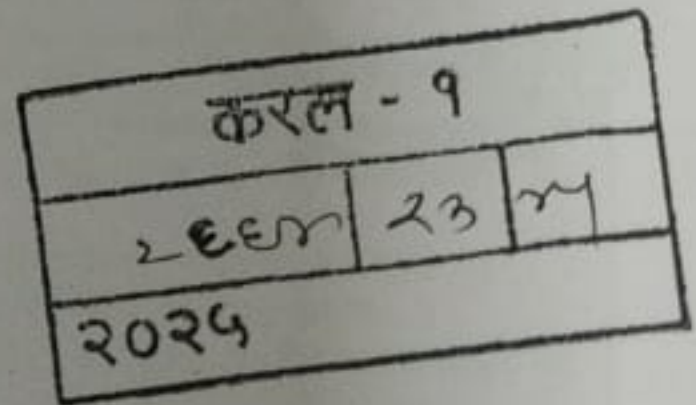 करल - १
२६६५ २३
२०२५